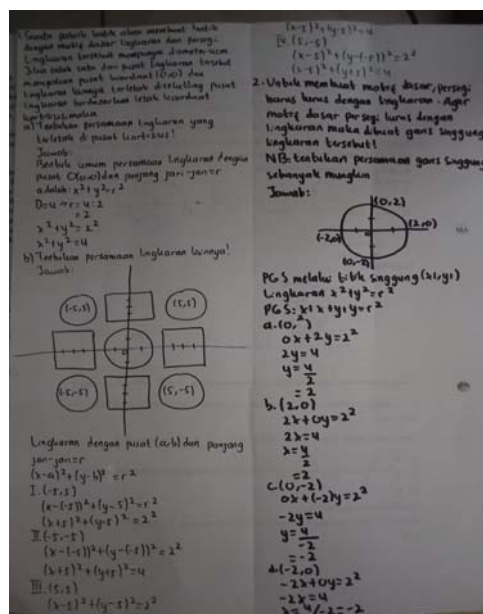 1. Suatu pabrik batik akan membuat batik
dengan motif dasar lingkaran dan persegi
Lingkaran tersebut mempunyai diameter 4cm
Jika salah satu dari pusat lingkaran tersebut
merupakan pusat koordinat (0,0) dan
lingkaran lainnya terletak disekeliling pusat
lingkaran berdasarkan letak koordinat
kartesius maka
a) Tentukan persamaan lingkaran yang
terletak di pusat kartesius!
Jawab:
Bentuk umum persamaan lingkaran dengan
pusat O(0,0) dan panjang jari-jari=r
adalah: x²+y²=r²
D=4→r=4:2
=2
x²+y²=2²
x²+y²=4
b) Tentukan persamaan lingkaran lainnya!
Jawab:
(-5,5)
(5,5)
(-5,-5)
(5,-5)
Lingkaran dengan pusat (a,b) dan panjang
jari-jari=r
(x-a)²+(y-b)²=r²
I. (-5,5)
(x-(-5))²+(y-5)²=r²
(x+5)²+(y-5)²=2²
II. (-5,-5)
(x-(-5))²+(y-(-5))²=2²
(x+5)²+(y+5)²=4
III. (5,5)
(x-5)²+(y-5)²=2²
(x-5)²+(y-5)²=4
IV. (5,-5)
(x-5)²+(y-(-5))²=2²
(x-5)²+(y+5)²=4
2. Untuk membuat motif dasar, persegi
harus lurus dengan lingkaran. Agar
motif dasar persegi lurus dengan
lingkaran maka dibuat garis singgung
lingkaran tersebut!
NB: tentukan persamaan garis singgung
sebanyak mungkin
Jawab:
(0,2)
(-2,0)
(2,0)
(0,-2)
PGS melalui titik singgung (x1,y1)
Lingkaran x²+y²=r²
PGS: x1x+y1y=r²
a. (0,2)
0x+2y=2²
2y=4
y=4/2
=2
b. (2,0)
2x+0y=2²
2x=4
x=4/2
=2
c. (0,-2)
0x+(-2)y=2²
-2y=4
y=4/-2
=-2
d. (-2,0)
-2x+0y=2²
-2x=4
x=4/-2=-2